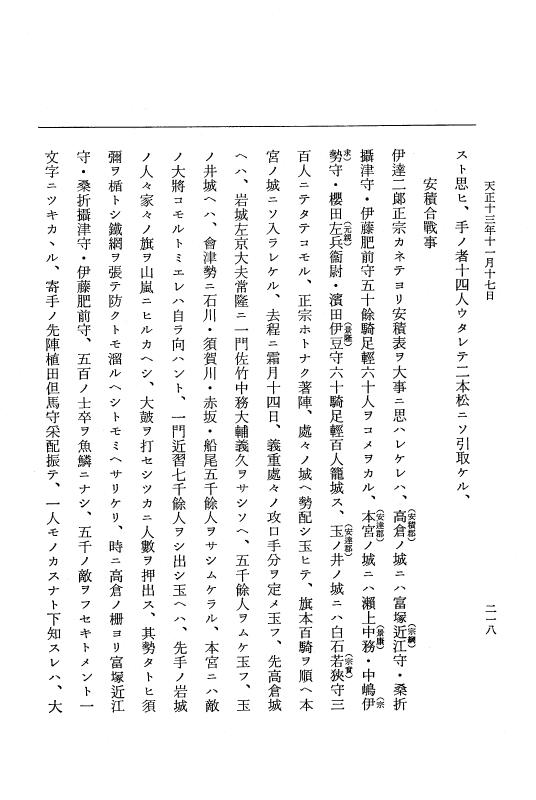 天正十三年十一月十七日
二一八
スト思ヒ、手ノ者十四人ウタレテ二本松ニソ引取ケル、
安積合戰事
伊達二郎正宗カネテヨリ安積表ヲ大事ニ思ハレケレハ、高倉ノ城ニハ富塚近江守・桑折
(安積郡)
(宗綱)
攝津守・伊藤肥前守五十餘騎足輕六十人ヲコメヲカル、本宮ノ城ニハ瀨上中務・中嶋伊
(安達郡)
(景康)
(宗
勢守・櫻田左兵衞尉・濱田伊豆守六十騎足輕百人籠城ス、玉ノ井ノ城ニハ白石若狹守三
求)
(元親)
(景隆)
(安達郡)
(宗實)
百人ニテタテコモル、正宗ホトナク著陣、處々ノ城ヘ勢配シ玉ヒテ、旗本百騎ヲ順ヘ本
宮ノ城ニソ入ラレケル、去程ニ霜月十四日、義重處々ノ攻口手分ヲ定メ玉フ、先高倉城
ヘハ、岩城左京大夫常隆ニ一門佐竹中務大輔義久ヲサシソヘ、五千餘人ヲムケ玉フ、玉
ノ井城ヘハ、會津勢ニ石川・須賀川・赤坂・船尾五千餘人ヲサシムケラル、本宮ニハ敵
ノ大將コモルトミエレハ自ラ向ハント、一門近習七千餘人ヲシ出シ玉ヘハ、先手ノ岩城
ノ人々家々ノ旗ヲ山嵐ニヒルカヘシ、大皷ヲ打セシツカニ人數ヲ押出ス、其勢タトヒ須
彌ヲ楯トシ鐵網ヲ張テ防クトモ溜ルヘシトモミヘサリケリ、時ニ高倉ノ柵ヨリ富塚近江
守・桑折攝津守・伊藤肥前守、五百ノ士卒ヲ魚鱗ニナシ、五千ノ敵ヲフセキトメント一
文字ニツキカヽル、寄手ノ先陣植田但馬守采配振テ、一人モノカスナト下知スレハ、大